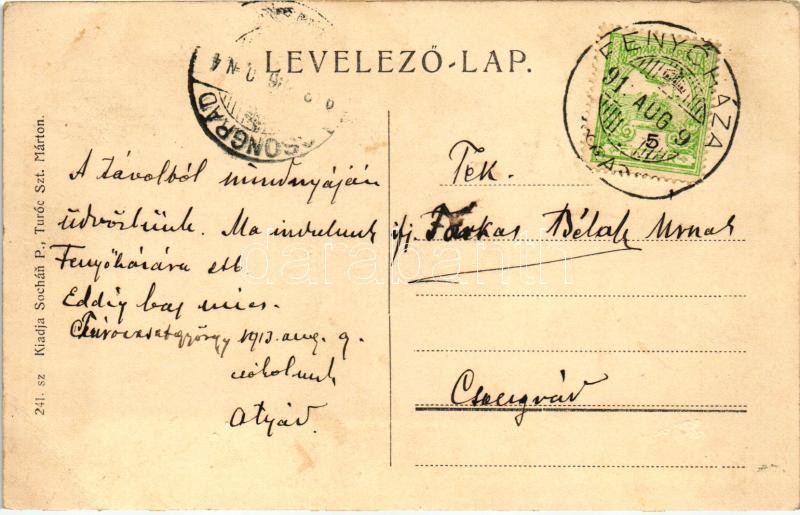 LEVELEZŐ-LAP.
CSONGRÁD
FENYŐHÁZA
AUG 9
5
241. sz Kiadja Socháň P., Turóc Szt. Márton.
A távolból mindnyáján
üdvözlünk. Ma indulunk
Fenyőházára
Eddig baj nincs.
Turócszentgyörgy 1913. aug. 9.
csókolunk
atyád.
Tek.
ifj. Farkas Béla Urnak
Csongrád
darabanth